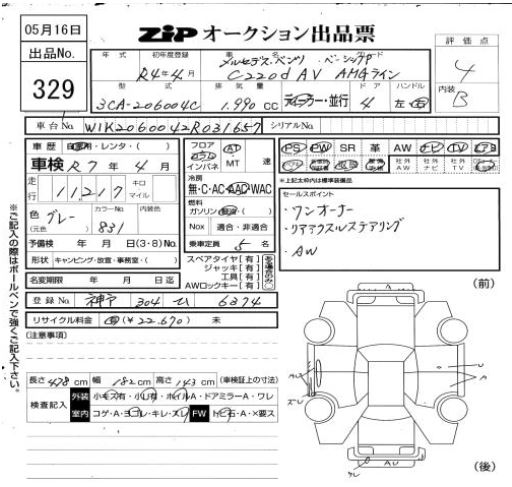 05月16日
出品No.
329
ZIP オークション出品票
評価点
4
内装
B
年式 初年度登録 車名 グレード
R4年4月 メルセデス・ベンツ ベーシックP
C220d AV AMGライン
型式 排気量 ドア ハンドル
3CA-206004C 1,990 CC ディーラー・並行 4 左・右
車台No. W1K2060042R031657 シリアルNo.
車歴 自家用・レンタ・( )
車検 R7年4月
走行 11,217 キロ マイル
色 グレー (元色) カラーNo. 831 内装色
予備検 年 月 日(3・8)No.
形状 キャンピング・放宣・事務室・( )
名変期限 年 月 日迄
フロア コラム インパネ AT MT 速
冷房
無・C・AC・AAC・WAC
燃料
ガソリン・軽油・( )
Nox 適合・非適合
乗車定員 5名
スペアタイヤ[有]
ジャッキ[有]
工具[有]
AWロックキー[有]
PS PW SR 革 AW ナビ TV
社外AW 社外ナビ 社外TV
*上記太枠内は標準装備品
セールスポイント
・ワンオーナー
・リアアクスルステアリング
・AW
登録No. 神戸 304 ひ 6374
リサイクル料金 有(¥22,670) 未
(注意事項)
長さ478cm 幅182cm 高さ143cm (車検証上の寸法)
検査記入
外装 小キズ有・小凹有・ホイルA・ドアミラーA・ワレ
室内 コゲ・A・ヨゴレ・キレ・スレ FW トビ石・A・X要ス
※ご記入の際はボールペンで強くご記入下さい。
(前)
A
U
A
AU
(後)